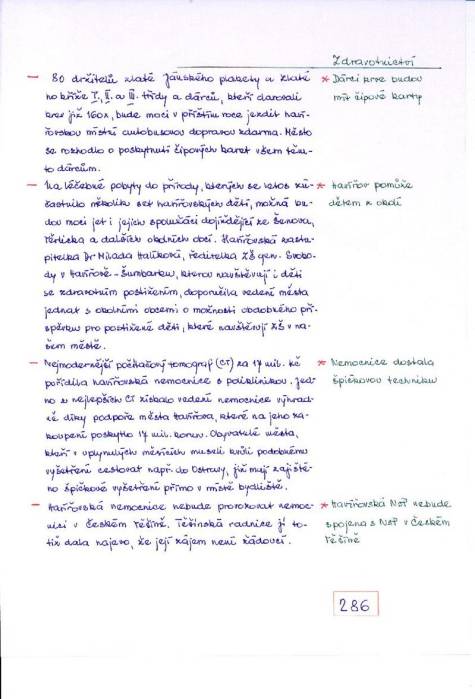 Zdravotnictví
– 80 držitelů zlaté Jánského plakety a zlaté
ho kříže I., II. a III. třídy a dárců, kteří darovali
krev již 160x, bude moci v příštím roce jezdit haví-
řovskou místní autobusovou dopravou zdarma. Město
se rozhodlo o poskytnutí čipových karet všem těm-
to dárcům.
* Dárci krve budou
mít čipové karty
– Na léčebné pobyty do přírody, kterých se letos zú-
častnilo několik set havířovských dětí, možná bu-
dou moci jet i jejich spolužáci dojíždějící ze Šenova,
Těrlicka a dalších okolních obcí. Havířovská zasta-
pitelka Dr Milada Halíková, ředitelka ZŠ gen. Svobo-
dy v Havířově – Šumbarku, kterou navštěvují i děti
se zdravotním postižením, doporučila vedení města
jednat s okolními obcemi o možnosti obdobného pří-
spěvku pro postižené děti, které navštěvují ZŠ v na-
šem městě.
* Havířov pomůže
dětem z okolí
– Nejmodernější počítačový tomograf (CT) za 17 mil. kč
pořídila havířovská nemocnice s poliklinikou. Jed-
no z nejlepších CT získalo vedení nemocnice výhrad-
ně díky podpoře města Havířova, které na jeho za-
koupení poskytlo 17 mil. korun. Obyvatelé města,
kteří v uplynulých měsících museli kvůli podobnému
vyšetření cestovat např. do Ostravy, již mají zajiště-
no špičkové vyšetření přímo v místě bydliště.
* Nemocnice dostala
špičkovou techniku
– Havířovská nemocnice nebude provozovat nemoc-
nici v Českém Těšíně. Těšínská radnice jí to-
tiž dala najevo, že její zájem není žádoucí.
* Havířovská NsP nebude
spojena s NsP v Českém
Těšíně
286